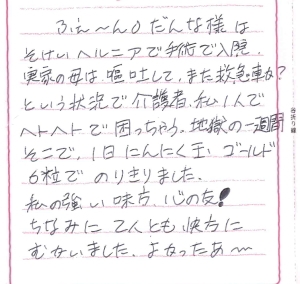 ふぇ〜ん〇だんな様は
そけいヘルニアで手術で入院.
実家の母は、嘔吐して、また救急車か?
という状況で介護者、私1人で
ヘトヘトで困っちゃう. 地獄の一週間
そこで、1日にんにく玉ゴールド
6粒でのりきりました.
私の強い味方、心の友!
ちなみに2人とも快方に
むかいました. よかったあ〜
谷折り線